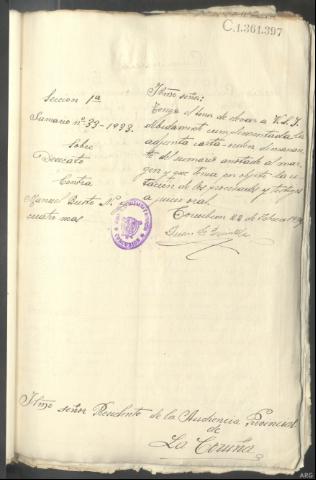 C.1.361.397
Seccion 1ª
Sumario nº 33-1933.
sobre
Desacato
Contra
Manuel Busto
cuatro mas
Iltmo señor:
Tengo el honor de elevar a V.S.I.
debidamente cumplimentada la
adjunta carta-orden dimanan-
te del sumario anotado al mar-
gen y que tenia por objeto la ci-
tación de los procesados y testigos
a juicio oral.
Corcubion 22 de Febrero
Iltmo señor Presidente de la Audiencia Provincial
de
La Coruña
ARG